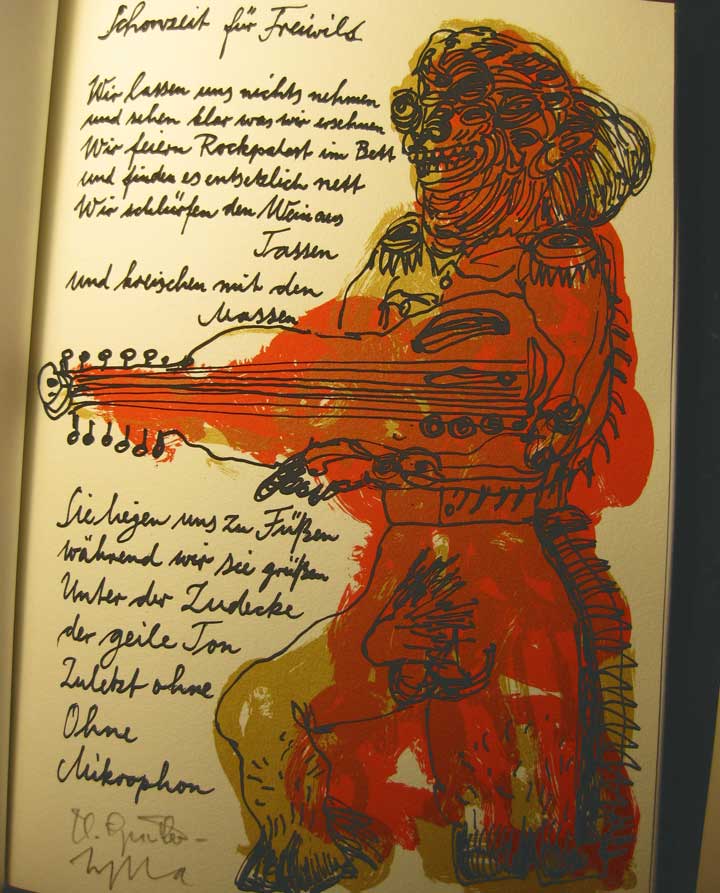 Schonzeit für Freiwild
Wir lassen uns nichts nehmen
und sehen klar was wir ersehnen
Wir feiern Rockpalast im Bett
und finden es entsetzlich nett
Wir schlürfen den Wein aus
Tassen
und kreischen mit den
Massen
Sie liegen uns zu Füßen
während wir sie grüßen
Unter der Zudecke
der geile Ton
Zuletzt ohne
Ohne
Mikrophon